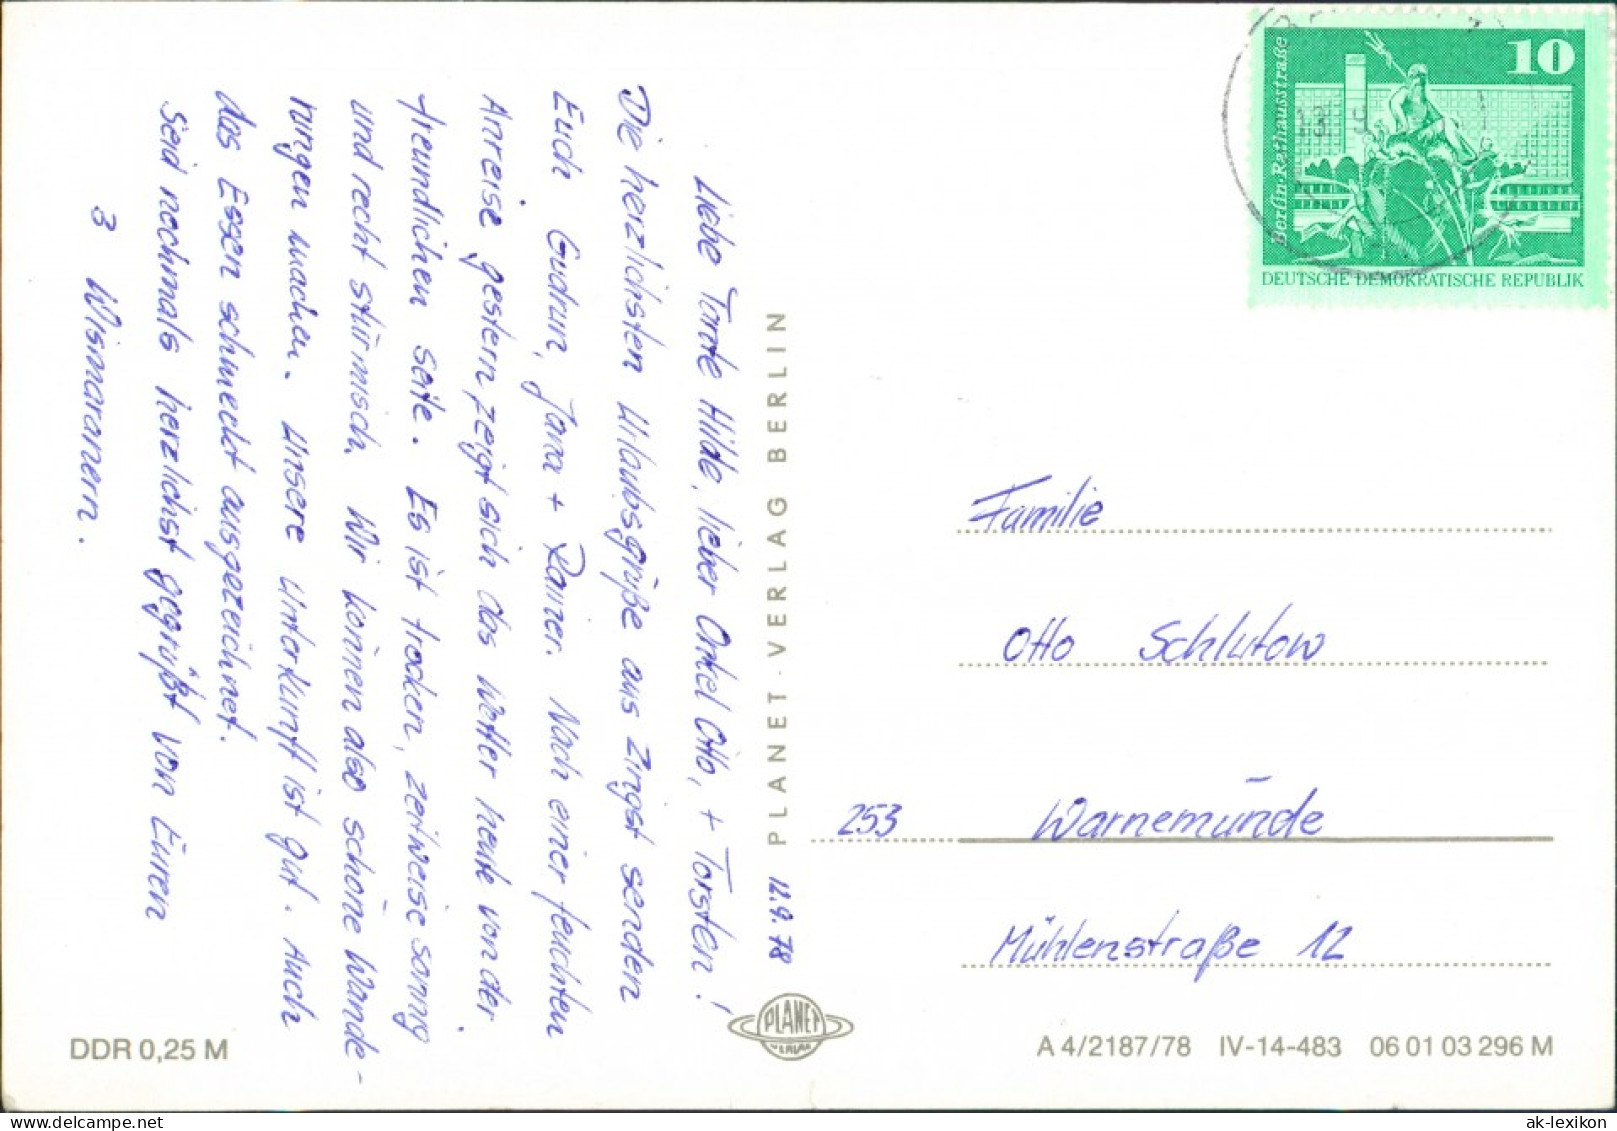 Liebe Tante Hilde, lieber Onkel Otto, + Torsten!
Die herzlichsten Urlaubsgrüße aus Zingst senden
Euch Gudrun, Jana + Rainer. Nach einer feuchten
Anreise gestern zeigt sich das Wetter heute von der
freundlichen Seite. Es ist trocken, zeitweise sonnig
und recht stürmisch. Wir können also schöne Wande-
rungen machen. Unsere Unterkunft ist gut. Auch
das Essen schmeckt ausgezeichnet.
Seid nochmals herzlichst gegrüßt von Euren
3 Wismaranern.
DDR 0,25 M
PLANET-VERLAG BERLIN
12.9.78
PLANET
VERLAG
10
Berlin Rathausstraße
DEUTSCHE DEMOKRATISCHE REPUBLIK
Familie
Otto Schlutow
253 Warnemünde
Mühlenstraße 12
A 4/2187/78 IV-14-483 06 01 03 296 M
ak-lexikon